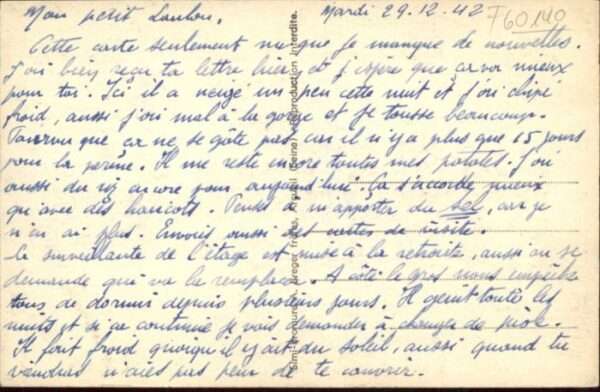 Mon petit Loulou,
Mardi 29.12.42
F60140
Cette carte seulement vu que je manque de nouvelles.
J'ai bien reçu ta lettre hier et j'espère que ça va mieux
pour toi. Ici il a neigé un peu cette nuit et j'ai chipé
froid, aussi j'ai mal à la gorge et je tousse beaucoup.
Pourvu que ça ne se gâte pas car il n'y a plus que 15 jours
pour la perme. Il me reste encore toutes mes patates. J'en
aussi du riz encore pour aujourd'hui. Ça s'accorde mieux
qu'avec des haricots. Penses à m'apporter du sel, car je
n'en ai plus. Envois aussi des cartes de visite.
La surveillante de l'étage est mise à la retraite, aussi on se
demande qui va la remplacer. A côté le gros nous empêche
tous de dormir depuis plusieurs jours. Il geint toute les
nuits et si ça continue je vais demander à changer de piole.
Il fait froid quoiqu'il y ait du soleil, aussi quand tu
viendras n'aies pas peur de te couvrir.
Reproduction interdite.